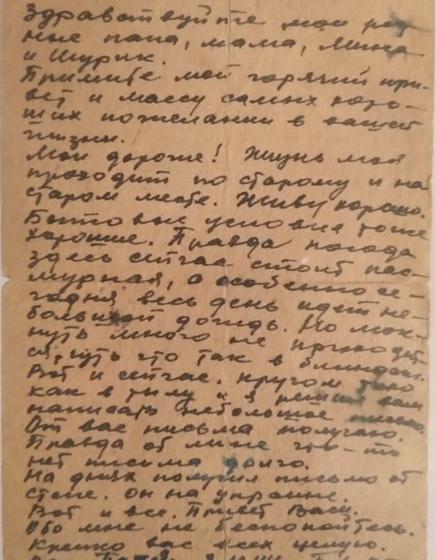 Здравствуйте мои род
ные папа, мама, Мина
и Шурик.
Примите мой горячий при-
вет и массу самых хоро-
ших пожелании в вашей
жизни.
Мои дорогие! Жизнь моя
проходит по старому и на
старом месте. Живу хорошо.
Бытовые условия тоже
хорошие. Правда погода
здесь сейчас стоит пас-
мурная, а особенно се-
годня весь день идет не-
большой дождь. Но мок-
нуть много не приходит
ся, чуть что так в блиндаж.
Вот и сейчас. кругом тихо
как в тылу и я решил вам
написать небольшое письмо.
От вас письма получаю.
Правда от мине что-то
нет письма долго.
На днях получил письмо от
степе. он на украине.
Вот и все. Привет Васи.
Обо мне не беспокойтесь.
Крепко вас всех целую.